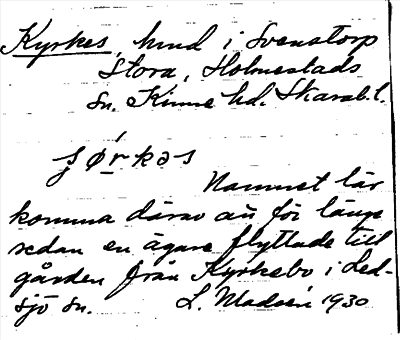 Kyrkes, hmd i Svenstorp
Stora, Holmestads
sn. Kinne hd. Skarab.l.
ʒø̀rkəs
Namnet lär
komma därav att för länge
sedan en ägare flyttade till
gården från Kyrkebo i Led-
sjö sn. L. Madsén 1930